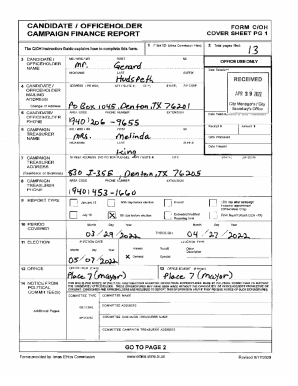 CANDIDATE / OFFICEHOLDER
CAMPAIGN FINANCE REPORT
FORM C/OH
COVER SHEET PG 1
The C/OH Instruction Guide explains how to complete this form.
1 Filer ID (Ethics Commission Filers)
2 Total pages filed:
13
3 CANDIDATE / OFFICEHOLDER NAME
MS / MRS / MR
FIRST
MI
Mr. Gerard
NICKNAME
LAST
SUFFIX
Hudspeth
OFFICE USE ONLY
Date Received
RECEIVED
APR 29 2022
City Manager's / City
Secretary's Office
4 CANDIDATE / OFFICEHOLDER MAILING ADDRESS
Change of Address
ADDRESS / PO BOX; APT / SUITE #; CITY; STATE; ZIP CODE
Po Box 1045, Denton TX 76201
5 CANDIDATE / OFFICEHOLDER PHONE
AREA CODE
PHONE NUMBER
EXTENSION
(940) 206-9655
Receipt #
Amount $
6 CAMPAIGN TREASURER NAME
MS / MRS / MR
FIRST
MI
Mrs. Melinda
NICKNAME
LAST
SUFFIX
King
Date Processed
Date Imaged
7 CAMPAIGN TREASURER ADDRESS
(Residence or Business)
STREET ADDRESS (NO PO BOX PLEASE); APT / SUITE #; CITY; STATE; ZIP CODE
830 S-I35E, Denton, TX 76205
8 CAMPAIGN TREASURER PHONE
AREA CODE
PHONE NUMBER
EXTENSION
(940) 453-1660
9 REPORT TYPE
January 15
30th day before election
Runoff
15th day after campaign treasurer appointment (Officeholder Only)
July 15
8th day before election
Exceeded Modified Reporting Limit
Final Report (Attach C/OH - FR)
10 PERIOD COVERED
Month Day Year
03 / 29 / 2022
THROUGH
Month Day Year
04 / 27 / 2022
11 ELECTION
ELECTION DATE
Month Day Year
05 / 07 / 2022
ELECTION TYPE
Primary
Runoff
Other Description
General
Special
12 OFFICE
OFFICE HELD (if any)
Place 7 (mayor)
13 OFFICE SOUGHT (if known)
Place 7 (mayor)
14 NOTICE FROM POLITICAL COMMITTEE(S)
Additional Pages
COMMITTEE TYPE
COMMITTEE NAME
GENERAL
COMMITTEE ADDRESS
SPECIFIC
COMMITTEE CAMPAIGN TREASURER NAME
COMMITTEE CAMPAIGN TREASURER ADDRESS
GO TO PAGE 2
Forms provided by Texas Ethics Commission
www.ethics.state.tx.us